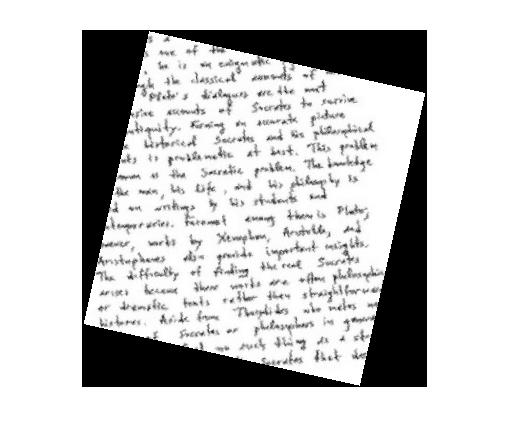 is one of the
he is an enigmatic
the classical accounts of
Plato's dialogues are the most
accounts of Socrates to survive
antiquity. Forming an accurate picture
historical Socrates and his philosophical
is problematic at best. This problem
as the Socratic problem. The knowledge
the man, his life, and his philosophy is
on writings by his students and
contemporaries. Foremost among them is Plato,
however, works by Xenophon, Aristotle, and
Aristophanes also provide important insights.
The difficulty of finding the real Socrates
arises because these works are often philosophic
or dramatic texts rather than straightforward
histories. Aside from Thucydides who makes no
Socrates or philosophers in general
no such thing as a str
Socrates that